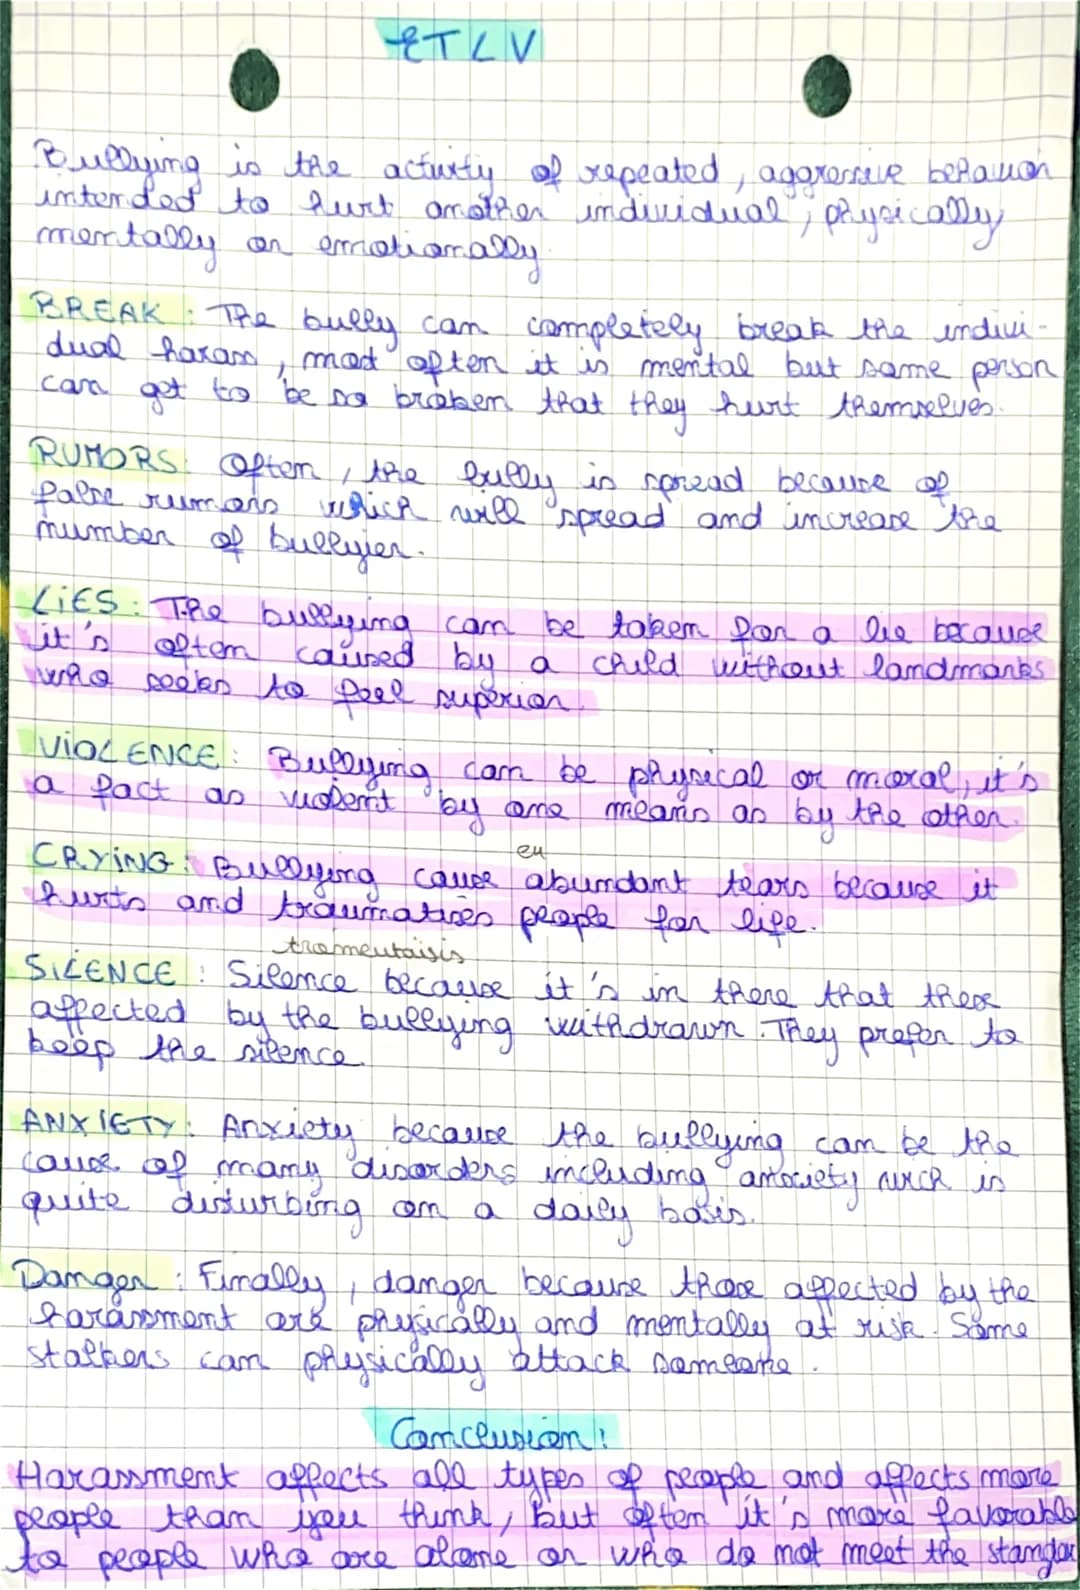 ETLV
Bullying is the activity of repeated, aggressive behavior
intended to hurt another individual, physically
mentally or emotionally.
BREAK : The bully can completely break the indivi-
dual harass, most often it is mental but some person
can get to be so broken that they hurt themselves.
RUMORS : Often, the bully is spread because of
false rumors which will spread and increase the
number of bullyier.
LiES : The bullying can be taken for a lie because
it's often caused by a child without landmarks
who seeks to feel superior.
ViOLENCE : Bullying can be physical or moral, it's
a fact as violent by one means as by the other.
eu
CRYiNG : Bullying cause abundant tears because it
hurts and traumatises people for life.
tromeutaisis
SiLENCE : Silence because it's in there that these
affected by the bullying withdrawn. They prefer to
keep the silence.
ANXIETY : Anxiety because the bullying can be the
cause of many disorders including anxciety wich is
quite disturbing on a daily basis.
Danger : Finally, danger because those affected by the
harassment are physically and mentally at risk. Some
stalkers can physically attack someone.
Conclusion :
Harassment affects all types of people and affects more
people than you think, but often it's more favorable
to people who are alone or who do not meet the standar